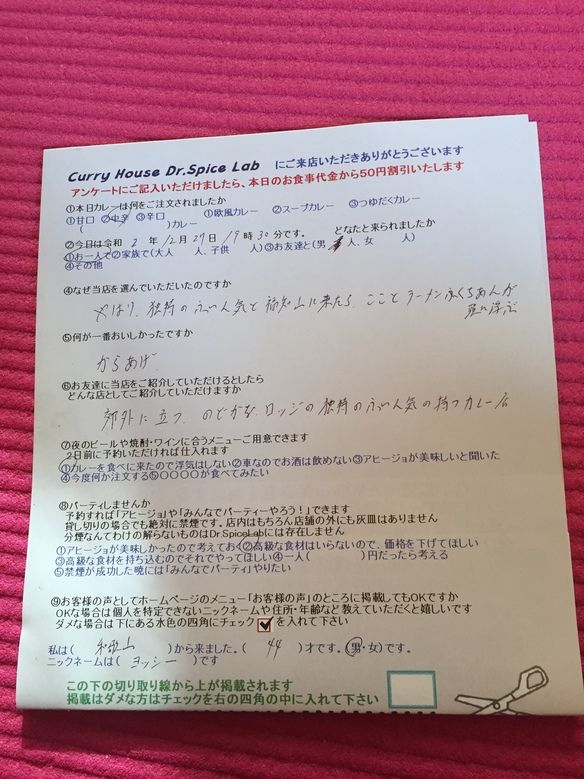 Curry House Dr.Spice Lab にご来店いただきありがとうございます
アンケートにご記入いただけましたら、本日のお食事代金から50円割引いたします
①本日カレーは何をご注文されましたか
①甘口 ②中辛 ③辛口 ①欧風カレー ②スープカレー ③つゆだくカレー
( )カレー
②今日は令和 2 年 12月 27日 19時 30分です。 どなたと来られましたか
①お一人で②家族で(大人 人、子供 人)③お友達と(男 人、女 人)
④その他
④なぜ当店を選んでいただいたのですか
やはり、独特のふん人気と福知山に来たら、こことラーメンふくちあんが
思い浮ぶ
⑤何が一番おいしかったですか
からあげ
⑥お友達に当店をご紹介していただけるとしたら
どんな店としてご紹介していただけますか
郊外に立つ、のどかな、ロッジの独特のふん人気の持つカレー店
⑦夜のビールや焼酎・ワインに合うメニューご用意できます
2日前に予約いただければ仕入れます
①カレーを食べに来たので浮気はしない②車なのでお酒は飲めない③アヒージョが美味しいと聞いた
④今度何か注文する⑤〇〇〇〇が食べてみたい
⑧パーティしませんか
予約すれば「アヒージョ」や「みんなでパーティーやろう!」できます
貸し切りの場合でも絶対に禁煙です。店内はもちろん店舗の外にも灰皿はありません
分煙なんてわけの解らないものはDr.SpiceLabには存在しません
①アヒージョが美味しかったので考えておく②高級な食材はいらないので、価格を下げてほしい
③高級な食材を持ち込むのでそれでやってほしい④一人( )円だったら考える
⑤禁煙が成功した暁には「みんなでパーティ」やりたい
⑨お客様の声としてホームページのメニュー「お客様の声」のところに掲載してもOKですか
OKな場合は個人を特定できないニックネームや住所・年齢など教えていただくと嬉しいです
ダメな場合は下にある水色の四角にチェック を入れて下さい
私は( 和歌山 )から来ました。( 44 )才です。(男・女)です。
ニックネームは( ヨッシー )です
この下の切り取り線から上が掲載されます
掲載はダメな方はチェックを右の四角の中に入れて下さい